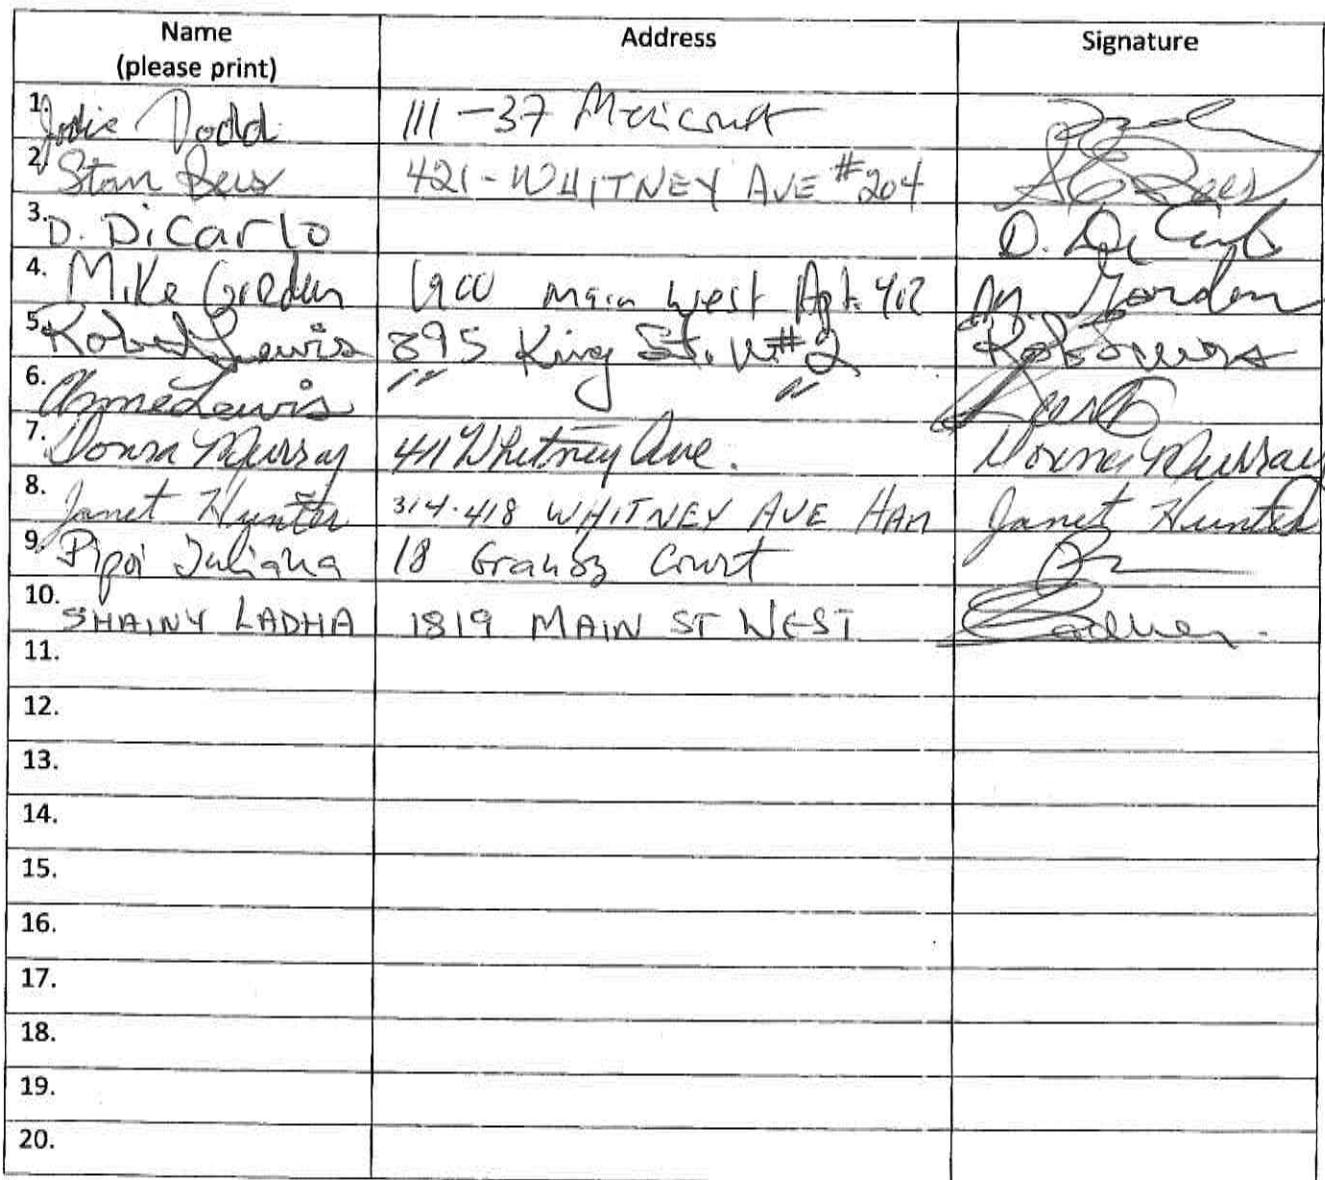 Name Address Signature
(please print)
1. Jodie Dodd 111-37
2. Stan Rees 421-WHITNEY AVE #204
3. D. DiCarlo D. DiCarlo
4. Mike Gordon 1900 Main West Apt. 402 M. Gordon
5. Robert Lewis 895 King St. W #2 Rob Lewis
6. Lewis " "
7. Donna Murray 411 Whitney Ave. Donna Murray
8. Janet Hunter 314-418 WHITNEY AVE HAM Janet Hunter
9. Juliana 18 Court
10. SHAINY LADHA 1819 MAIN ST WEST
11.
12.
13.
14.
15.
16.
17.
18.
19.
20.